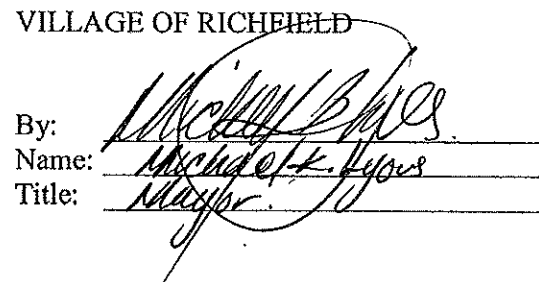 VILLAGE OF RICHFIELD
By:
Name: Michael K. Lyons
Title: Mayor.